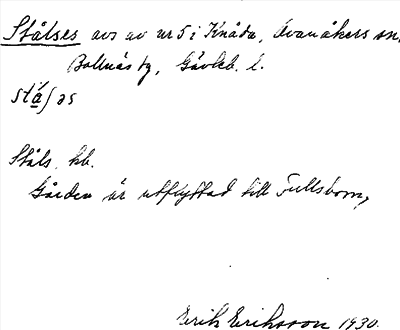 Stålses avs av nr 5 i Knåda, Ovanåkers sn,
Bollnäs tg, Gävleb. l.
Ståls. hb.
Gården är utflyttad till Fullsborn,
Erik Eriksson 1930.